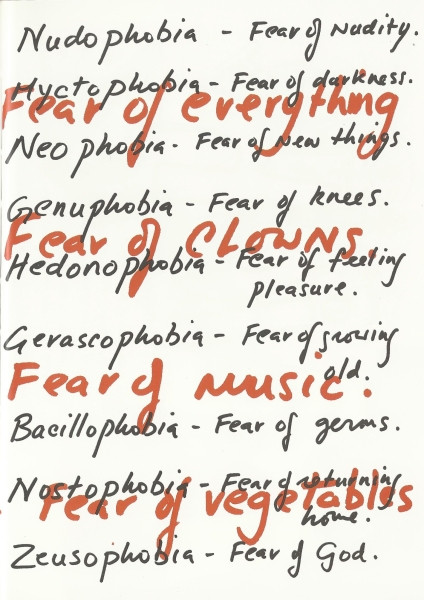 Nudophobia - Fear of nudity.
Hyctophobia - Fear of darkness.
Fear of everything
Neophobia - Fear of new things.
Genuphobia - Fear of knees.
Fear of CLOWNS.
Hedonophobia - Fear of feeling
pleasure.
Gerascophobia - Fear of growing
old.
Fear of music.
Bacillophobia - Fear of germs.
Nostophobia - Fear of returning
Fear of vegetables
home.
Zeusophobia - Fear of God.